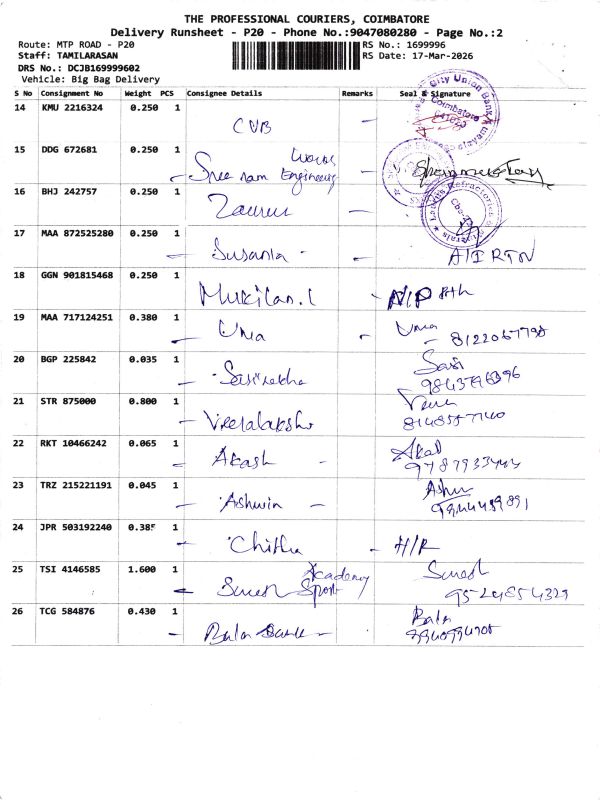 THE PROFESSIONAL COURIERS, COIMBATORE
Delivery Runsheet - P20 - Phone No.:9047080280 - Page No.:2
Route: MTP ROAD - P20
Staff: TAMILARASAN
DRS No.: DCJB169999602
Vehicle: Big Bag Delivery
RS No.: 1699996
RS Date: 17-Mar-2026
S No Consignment No Weight PCS Consignee Details Remarks Seal & Signature
14 KMU 2216324 0.250 1
CUB
City Union Bank
Coimbatore
15 DDG 672681 0.250 1
Sree ram Engineering works
16 BHJ 242757 0.250 1
Taurus
Refractories
17 MAA 872525280 0.250 1
Susanla - A/I RTN
18 GGN 901815468 0.250 1
Mukilan.I - N/P
19 MAA 717124251 0.380 1
Uma - Uma
8122067798
20 BGP 225842 0.035 1
Sasirekha Sasi
9843796396
21 STR 875000 0.800 1
22 RKT 10466242 0.065 1
Akash -
23 TRZ 215221191 0.045 1
Ashwin -
24 JPR 503192240 0.385 1
Chitha - H/R
25 TSI 4146585 1.600 1
Suresh Sport Academy Suresh
9524854329
26 TCG 584876 0.430 1
Bala - Bala